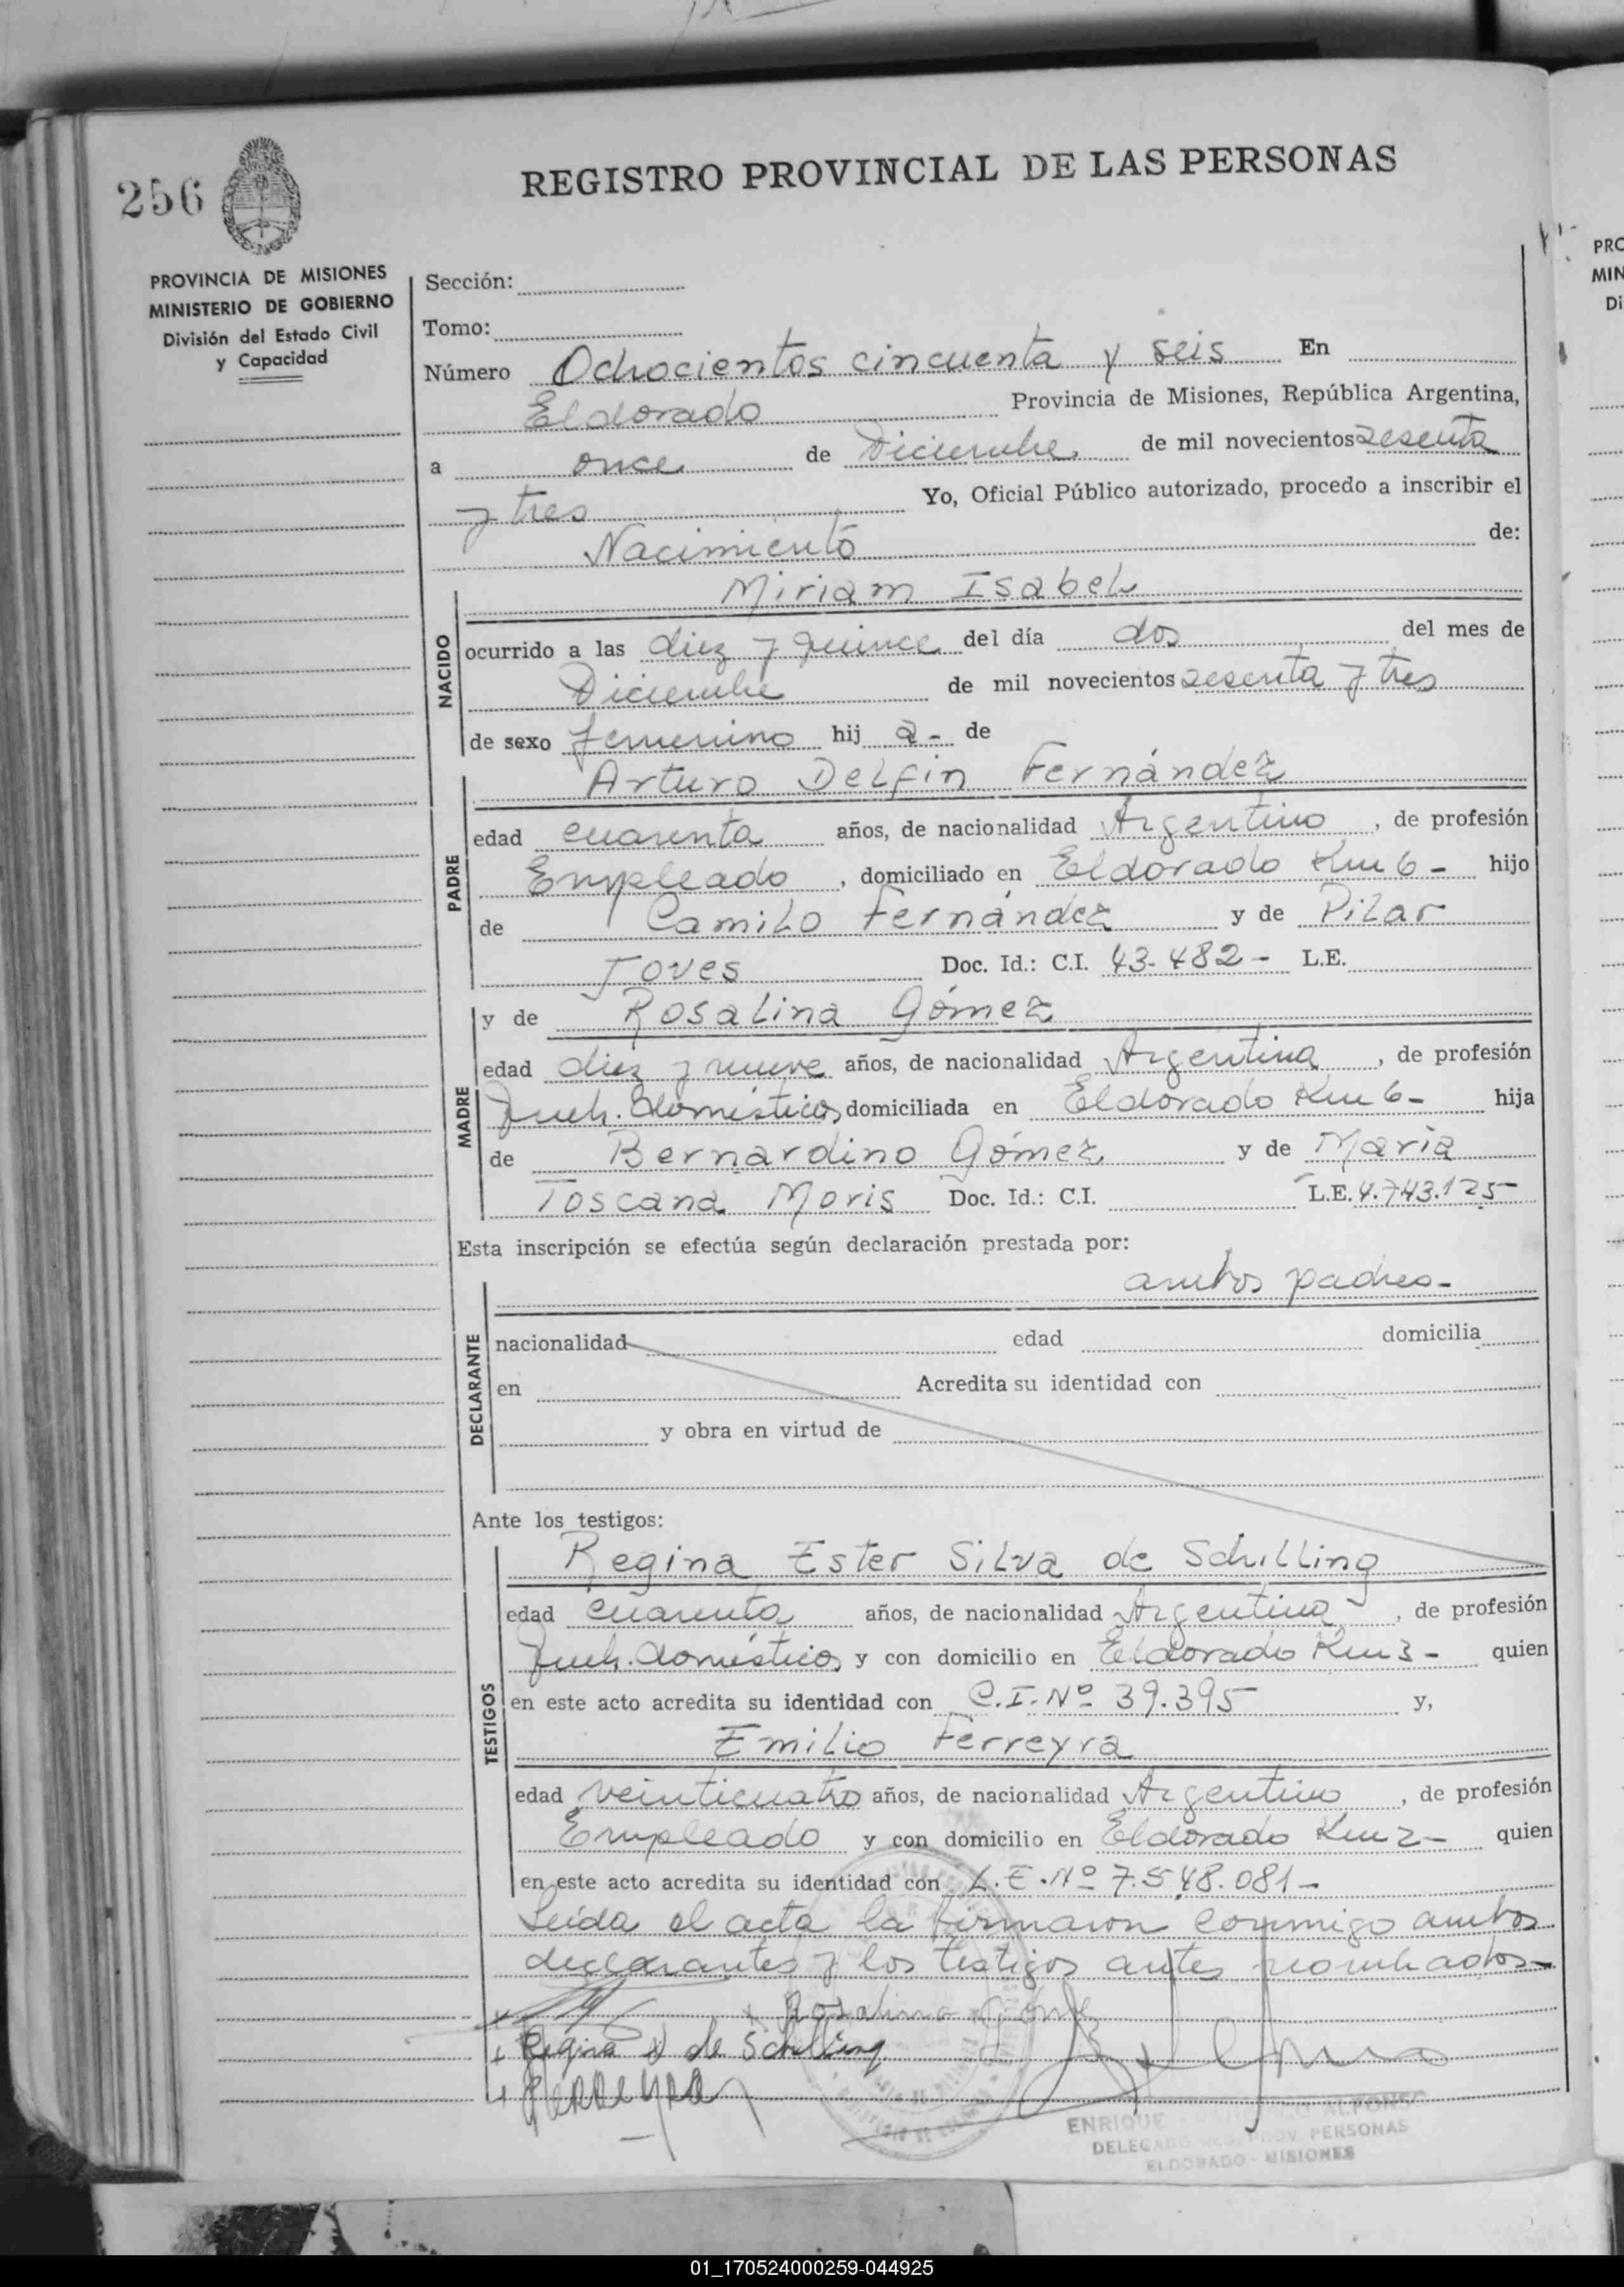 256
REGISTRO PROVINCIAL DE LAS PERSONAS
PROVINCIA DE MISIONES
MINISTERIO DE GOBIERNO
División del Estado Civil
y Capacidad
Sección:
Tomo:
Número Ochocientos cincuenta y seis En
Eldorado Provincia de Misiones, República Argentina,
a once de Diciembre de mil novecientos sesenta
y tres Yo, Oficial Público autorizado, procedo a inscribir el
Nacimiento de:
Miriam Isabel
NACIDO
ocurrido a las diez y quince del día dos del mes de
Diciembre de mil novecientos sesenta y tres
de sexo femenino hij a- de
Arturo Delfin Fernández
PADRE
edad cuarenta años, de nacionalidad Argentino, de profesión
Empleado, domiciliado en Eldorado Km 6- hijo
de Camilo Fernández y de Pilar
Joves Doc. Id.: C.I. 43.482- L.E.
MADRE
y de Rosalina Gómez
edad diez y nueve años, de nacionalidad Argentina, de profesión
Queh. domésticos, domiciliada en Eldorado Km 6- hija
de Bernardino Gómez y de María
Toscana Moris Doc. Id.: C.I. L.E. 4.743.125
Esta inscripción se efectúa según declaración prestada por:
ambos padres-
DECLARANTE
nacionalidad edad domicilia
en Acredita su identidad con
y obra en virtud de
Ante los testigos:
Regina Ester Silva de Schilling
TESTIGOS
edad cuarenta años, de nacionalidad Argentina, de profesión
Queh. domésticos y con domicilio en Eldorado Km 3- quien
en este acto acredita su identidad con C.I. Nº 39.395 y,
Emilio Ferreyra
edad veinticuatro años, de nacionalidad Argentino, de profesión
Empleado y con domicilio en Eldorado Km 2- quien
en este acto acredita su identidad con L.E. Nº 7.548.081-
Leída el acta la firmaron conmigo ambos
declarantes y los testigos antes nombrados-
x Rosalina Gómez
Regina de Schilling
Ferreyra
ENRIQUE ALFONSO
DELEGADO REG. PROV. PERSONAS
ELDORADO - MISIONES
PRO
MIN
Di
01_170524000259-044925